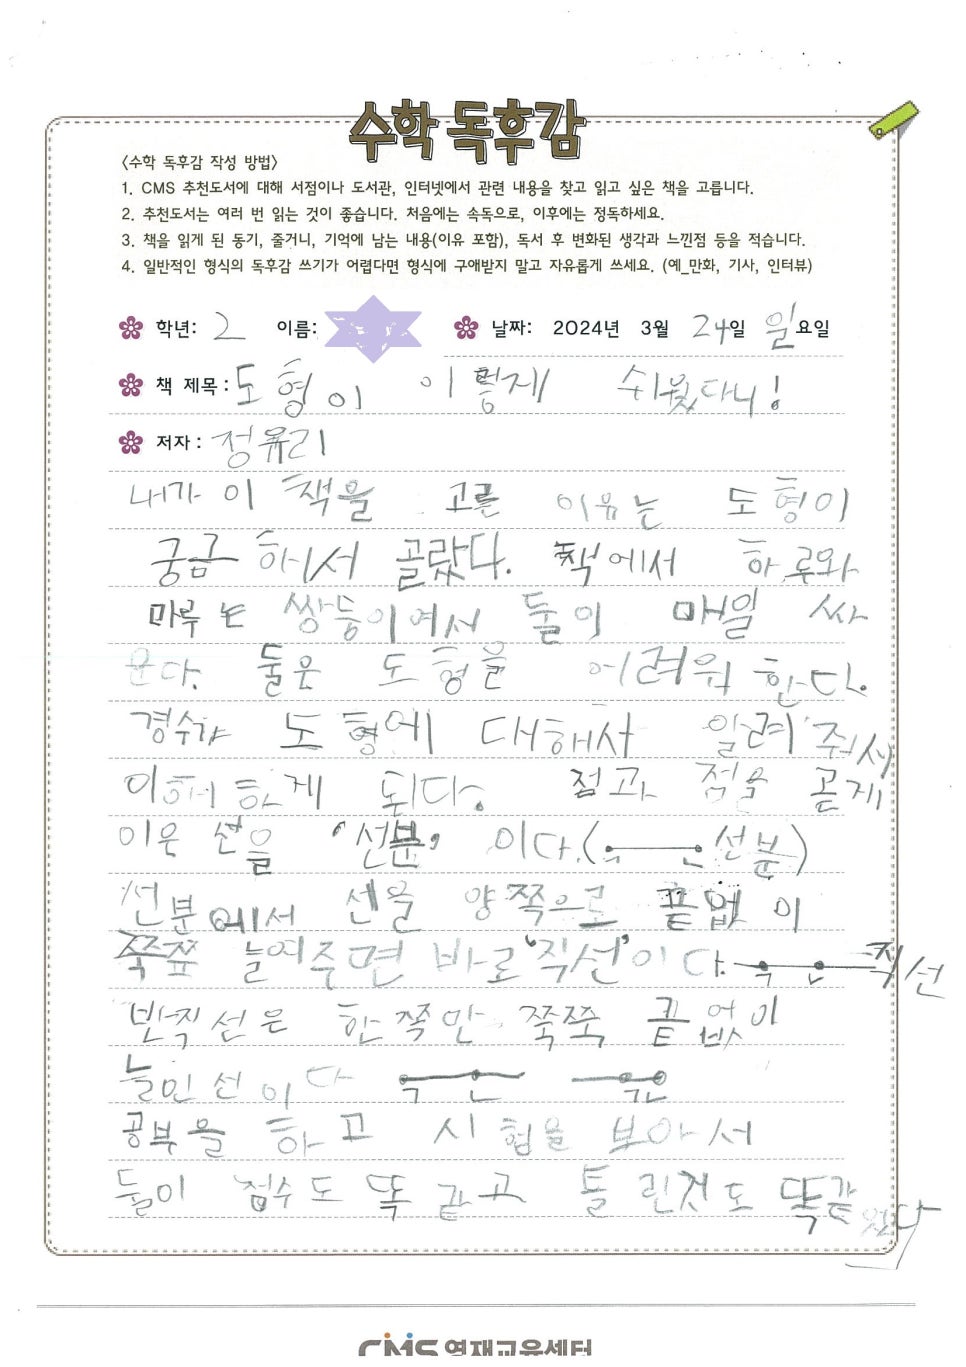 수학 독후감
<수학 독후감 작성 방법>
1. CMS 추천도서에 대해 서점이나 도서관, 인터넷에서 관련 내용을 찾고 읽고 싶은 책을 고릅니다.
2. 추천도서는 여러 번 읽는 것이 좋습니다. 처음에는 속독으로, 이후에는 정독하세요.
3. 책을 읽게 된 동기, 줄거리, 기억에 남는 내용(이유 포함), 독서 후 변화된 생각과 느낀점 등을 적습니다.
4. 일반적인 형식의 독후감 쓰기가 어렵다면 형식에 구애받지 말고 자유롭게 쓰세요. (예_만화, 기사, 인터뷰)
학년: 2 이름: 날짜: 2024년 3월 24일 일요일
책 제목: 도형이 이렇게 쉬웠다니!
저자: 정유리
내가 이 책을 고른 이유는 도형이
궁금하서 골랐다. 책에서 하루와
마루는 쌍둥이여서 둘이 매일 싸
운다. 둘은 도형을 어려워 한다.
경수가 도형에 대해서 알려 줘서
이해하게 된다. 점과 점을 곧게
이은 선을 '선분' 이다.(ㄱ ㄴ 선분)
선분에서 선을 양쪽으로 끝없이
쭉쭉 늘여주면 바로 '직선'이다. ㄱ ㄴ 직선
반직선은 한쪽만 쭉쭉 끝없이
늘인 선이다 ㄱ ㄴ ㄱ ㄴ
공부을 하고 시험을 보아서
둘이 점수도 똑 같고 틀린것도 똑같았다
CMS 영재교육센터